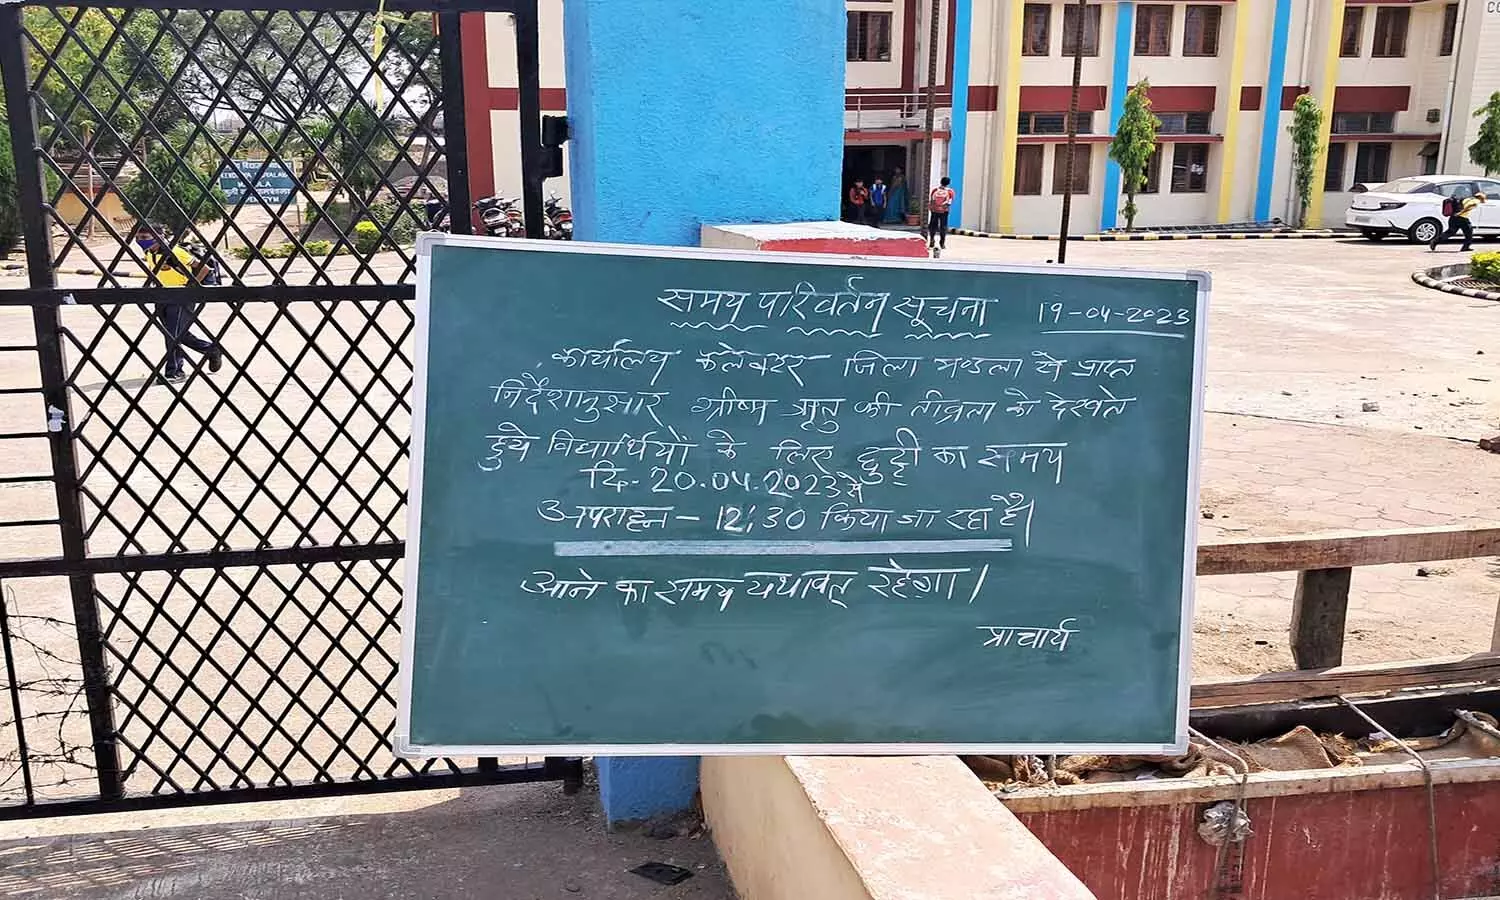 समय परिवर्तन सूचना 19-04-2023
कार्यालय कलेक्टर जिला मण्डला से प्राप्त
निर्देशानुसार ग्रीष्म ऋतु की तीव्रता को देखते
हुये विद्यार्थियों के लिए छुट्टी का समय
दि.-20.04.2023 से
अपराह्न - 12:30 किया जा रहा है।
आने का समय यथावत् रहेगा।
प्राचार्य